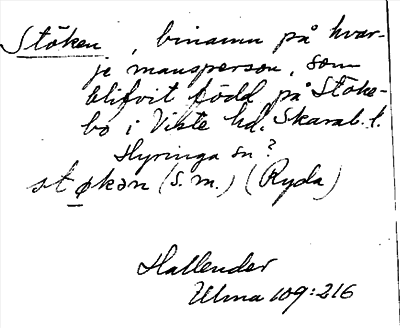 Stöken, binamn på hvar-
je mansperson, som
blifvit född på Stöke-
bo i Viste hd. Skarab. l.
Hyringa sn?
støkən (s.m.) (Ryda)
Hallender
Ulma 109:216